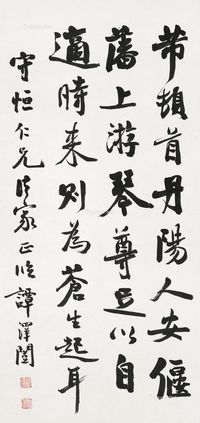 芾頓首丹陽人安偃
藩上游琴尊足以自
適時来則為蒼生起耳
守恒仁兄法家正临 譚澤闓